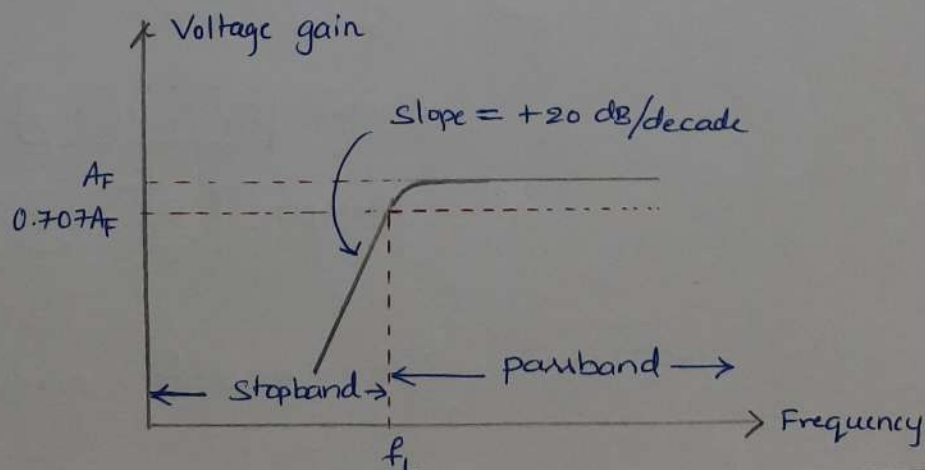 Voltage gain
slope = +20 dB/decade
AF
0.707AF
stopband
passband
Frequency
f1